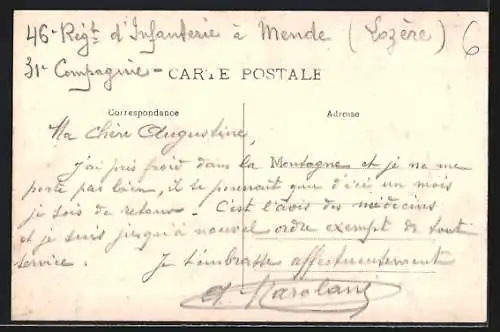 46e Régt d'Infanterie à Mende (Lozère) 6
31e Compagnie - CARTE POSTALE
Correspondance Adresse
Ma chère Augustine,
J'ai pris froid dans la Montagne et je ne me
porte pas bien, il se pourrait que d'ici un mois
je sois de retour. C'est l'avis des médecins
et je suis jusqu'à nouvel ordre exempt de tout
service. Je t'embrasse affectueusement